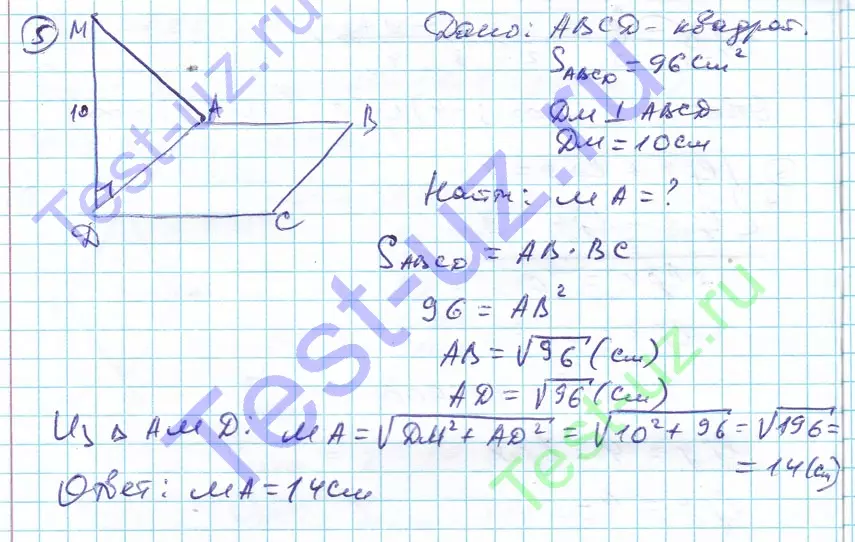 5
M
10
A
B
D
C
Дано: ABCD - квадрат.
S_ABCD = 96 см²
DM ⊥ ABCD
DM = 10 см
Найти: MA = ?
S_ABCD = AB · BC
96 = AB²
AB = √96 (см)
AD = √96 (см)
Из Δ AMD: MA = √DM² + AD² = √10² + 96 = √196 =
= 14 (см)
Ответ: MA = 14 см
Test-uz.ru
Test-uz.ru
Test-uz.ru